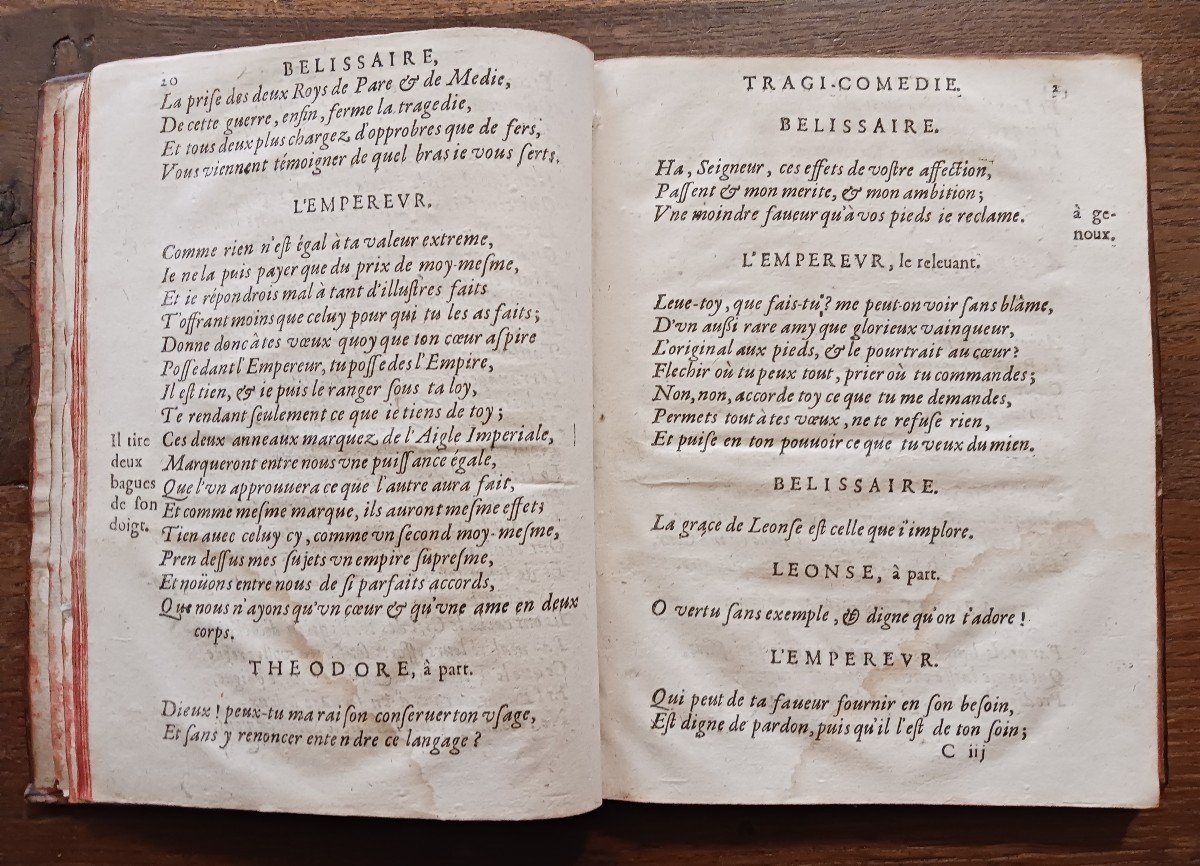 20 BELISSAIRE,
La prise des deux Roys de Pare & de Medie,
De cette guerre, enfin, ferme la tragedie,
Et tous deux plus chargez d'opprobres que de fers,
Vous viennent témoigner de quel bras ie vous serts.
L'EMPEREVR.
Comme rien n'est égal à ta valeur extreme,
Ie ne la puis payer que du prix de moy-mesme,
Et ie répondrois mal à tant d'illustres faits
T'offrant moins que celuy pour qui tu les as faits;
Donne donc à tes vœux quoy que ton cœur aspire
Possedant l'Empereur, tu possedes l'Empire,
Il est tien, & ie puis le ranger sous ta loy,
Te rendant seulement ce que ie tiens de toy;
Il tire
deux
bagues
de son
doigt.
Ces deux anneaux marquez de l'Aigle Imperiale,
Marqueront entre nous vne puissance égale,
Que l'vn approuuera ce que l'autre aura fait,
Et comme mesme marque, ils auront mesme effet;
Tien auec celuy cy, comme vn second moy-mesme,
Pren dessus mes sujets vn empire supresme,
Et noüons entre nous de si parfaits accords,
Que nous n'ayons qu'vn cœur & qu'vne ame en deux
corps.
THEODORE, à part.
Dieux! peux-tu ma raison conseruer ton vsage,
Et sans y renoncer entendre ce langage?
TRAGI-COMEDIE. 2
BELISSAIRE.
Ha, Seigneur, ces effets de vostre affection,
Passent & mon merite, & mon ambition;
Vne moindre faueur qu'à vos pieds ie reclame.
à ge-
noux.
L'EMPEREVR, le releuant.
Leue-toy, que fais-tu? me peut-on voir sans blâme,
D'vn aussi rare amy que glorieux vainqueur,
L'original aux pieds, & le pourtrait au cœur?
Flechir où tu peux tout, prier où tu commandes;
Non, non, accorde toy ce que tu me demandes,
Permets tout à tes vœux, ne te refuse rien,
Et puise en ton pouuoir ce que tu veux du mien.
BELISSAIRE.
La grace de Leonse est celle que i'implore.
LEONSE, à part.
O vertu sans exemple, & digne qu'on t'adore!
L'EMPEREVR.
Qui peut de ta faueur fournir en son besoin,
Est digne de pardon, puis qu'il l'est de ton soin;
C iij